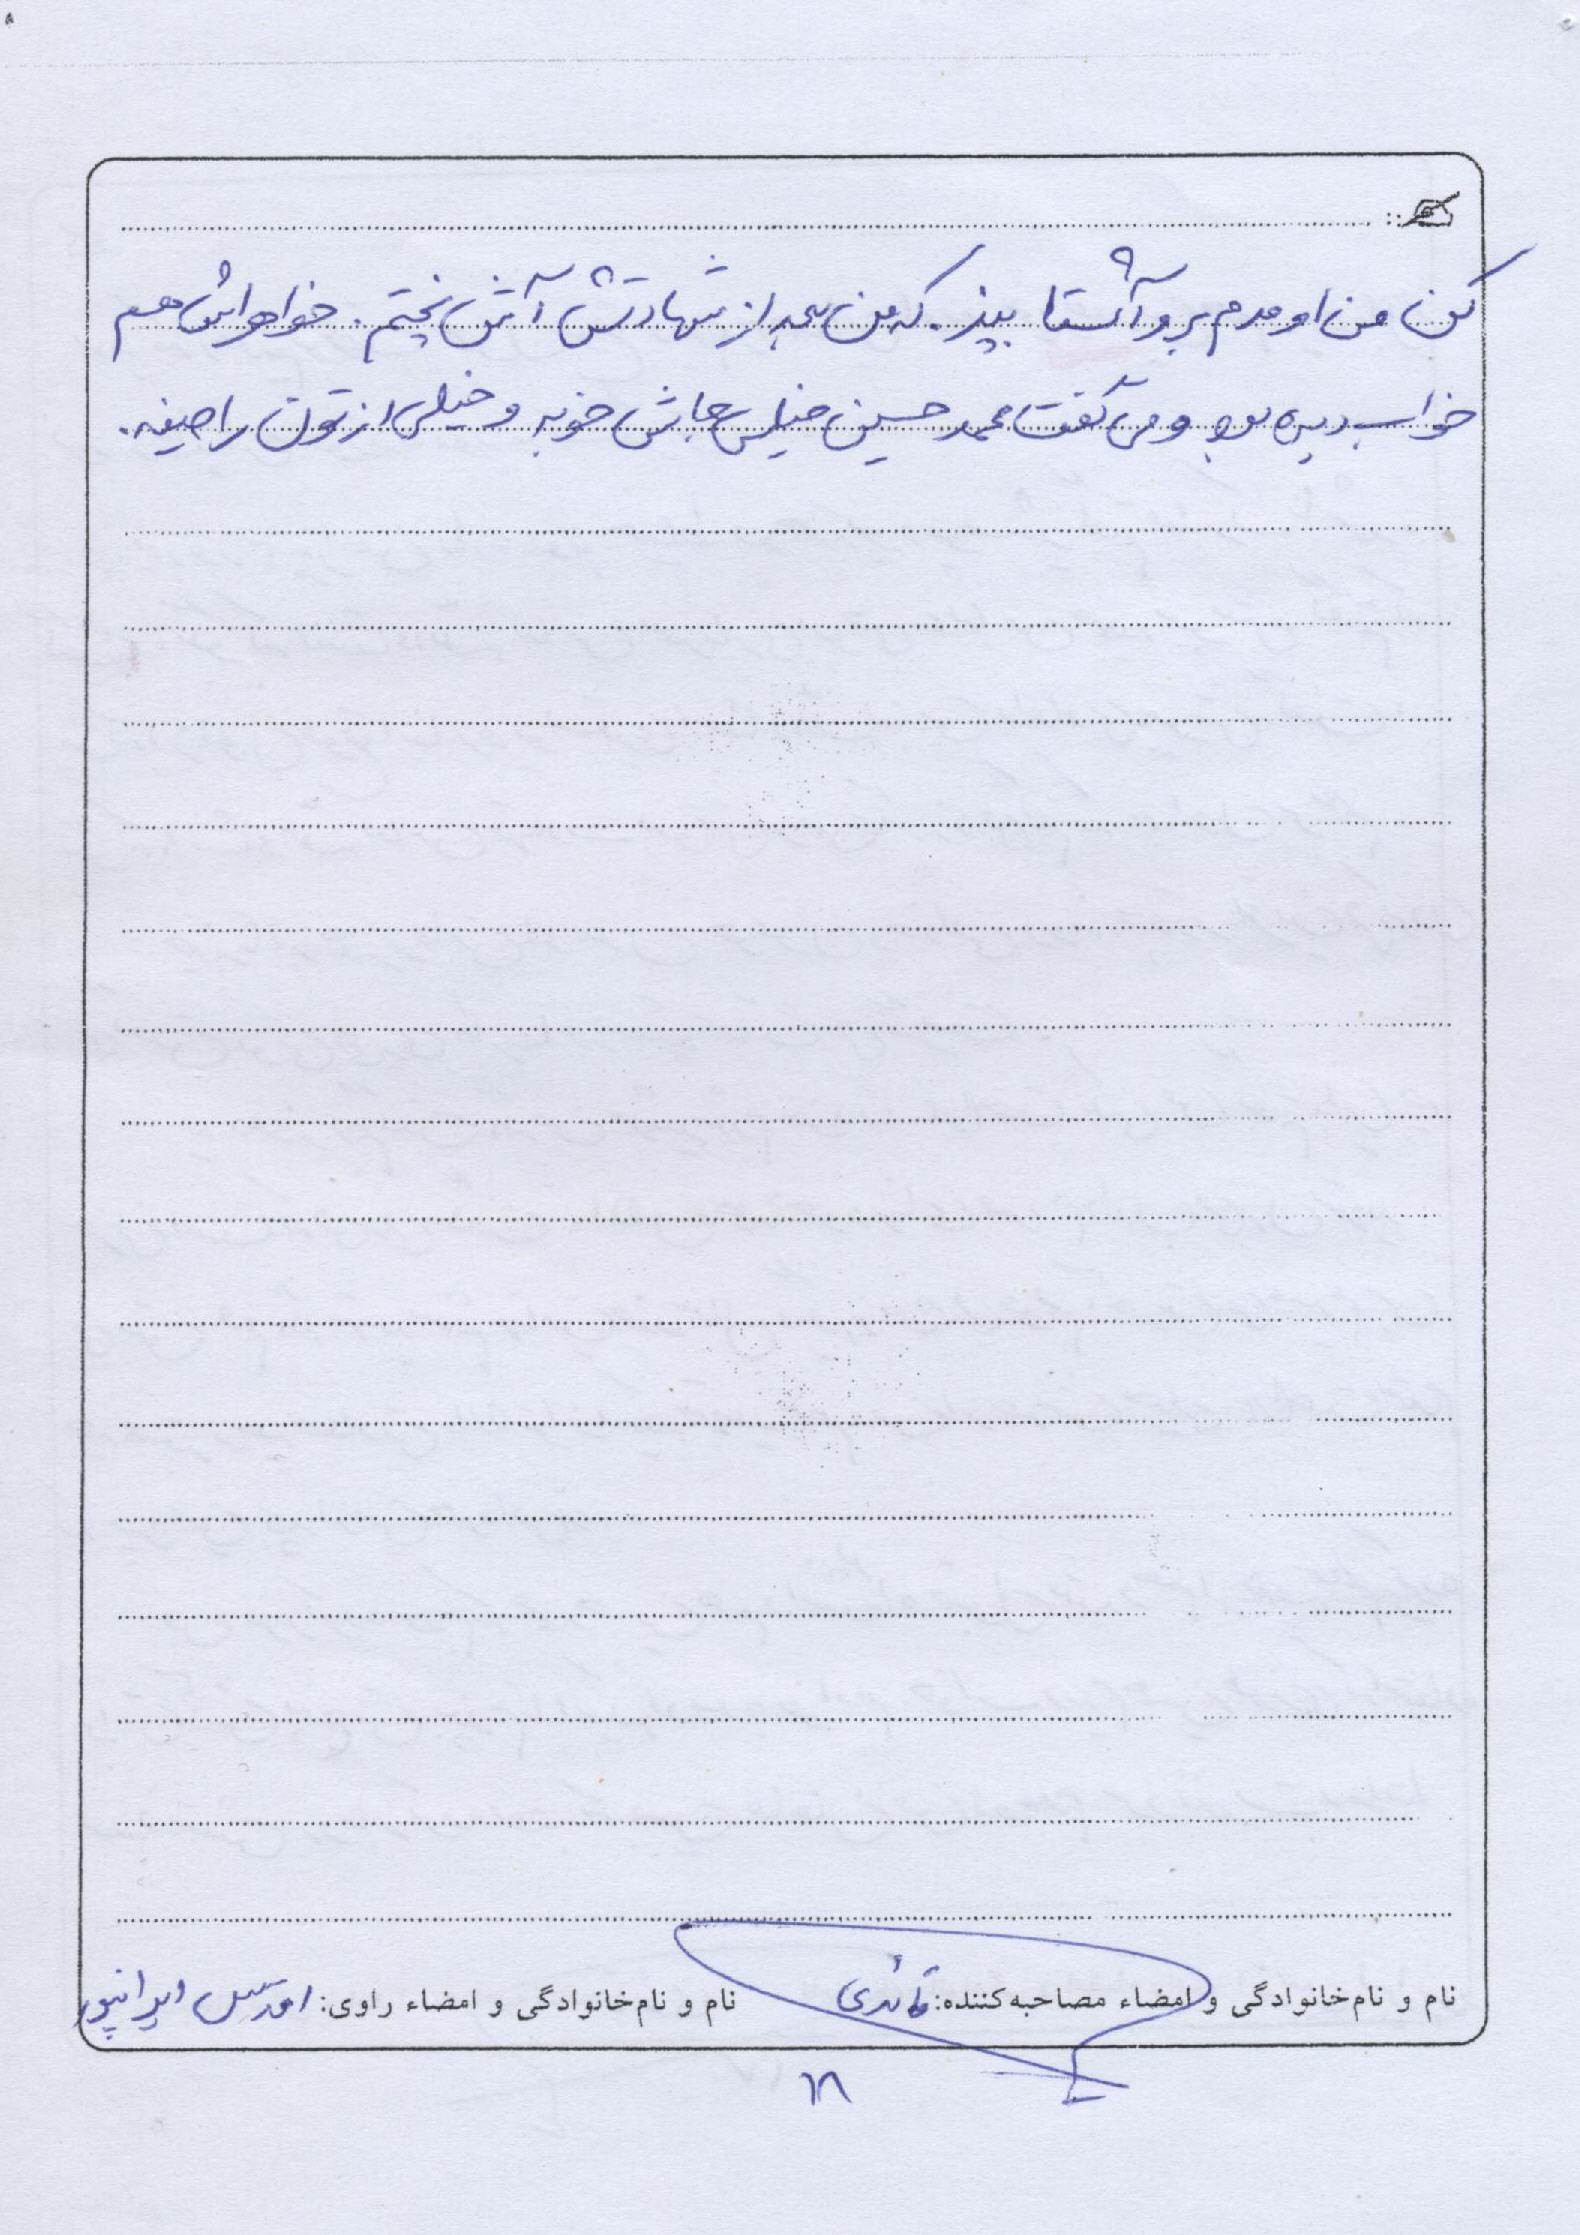 کن من اومدم برو آشتا بپز. که من بعد از شهادتش آش پختم. خواهراش هم
خواب دیده بود و می گفت محمد حسین خیلی جاش خوبه و خیلی ازتون راضیه.
نام و نام‌خانوادگی و امضاء مصاحبه‌کننده: قائدی
نام و نام‌خانوادگی و امضاء راوی: اقدس ایرانپور
۱۸